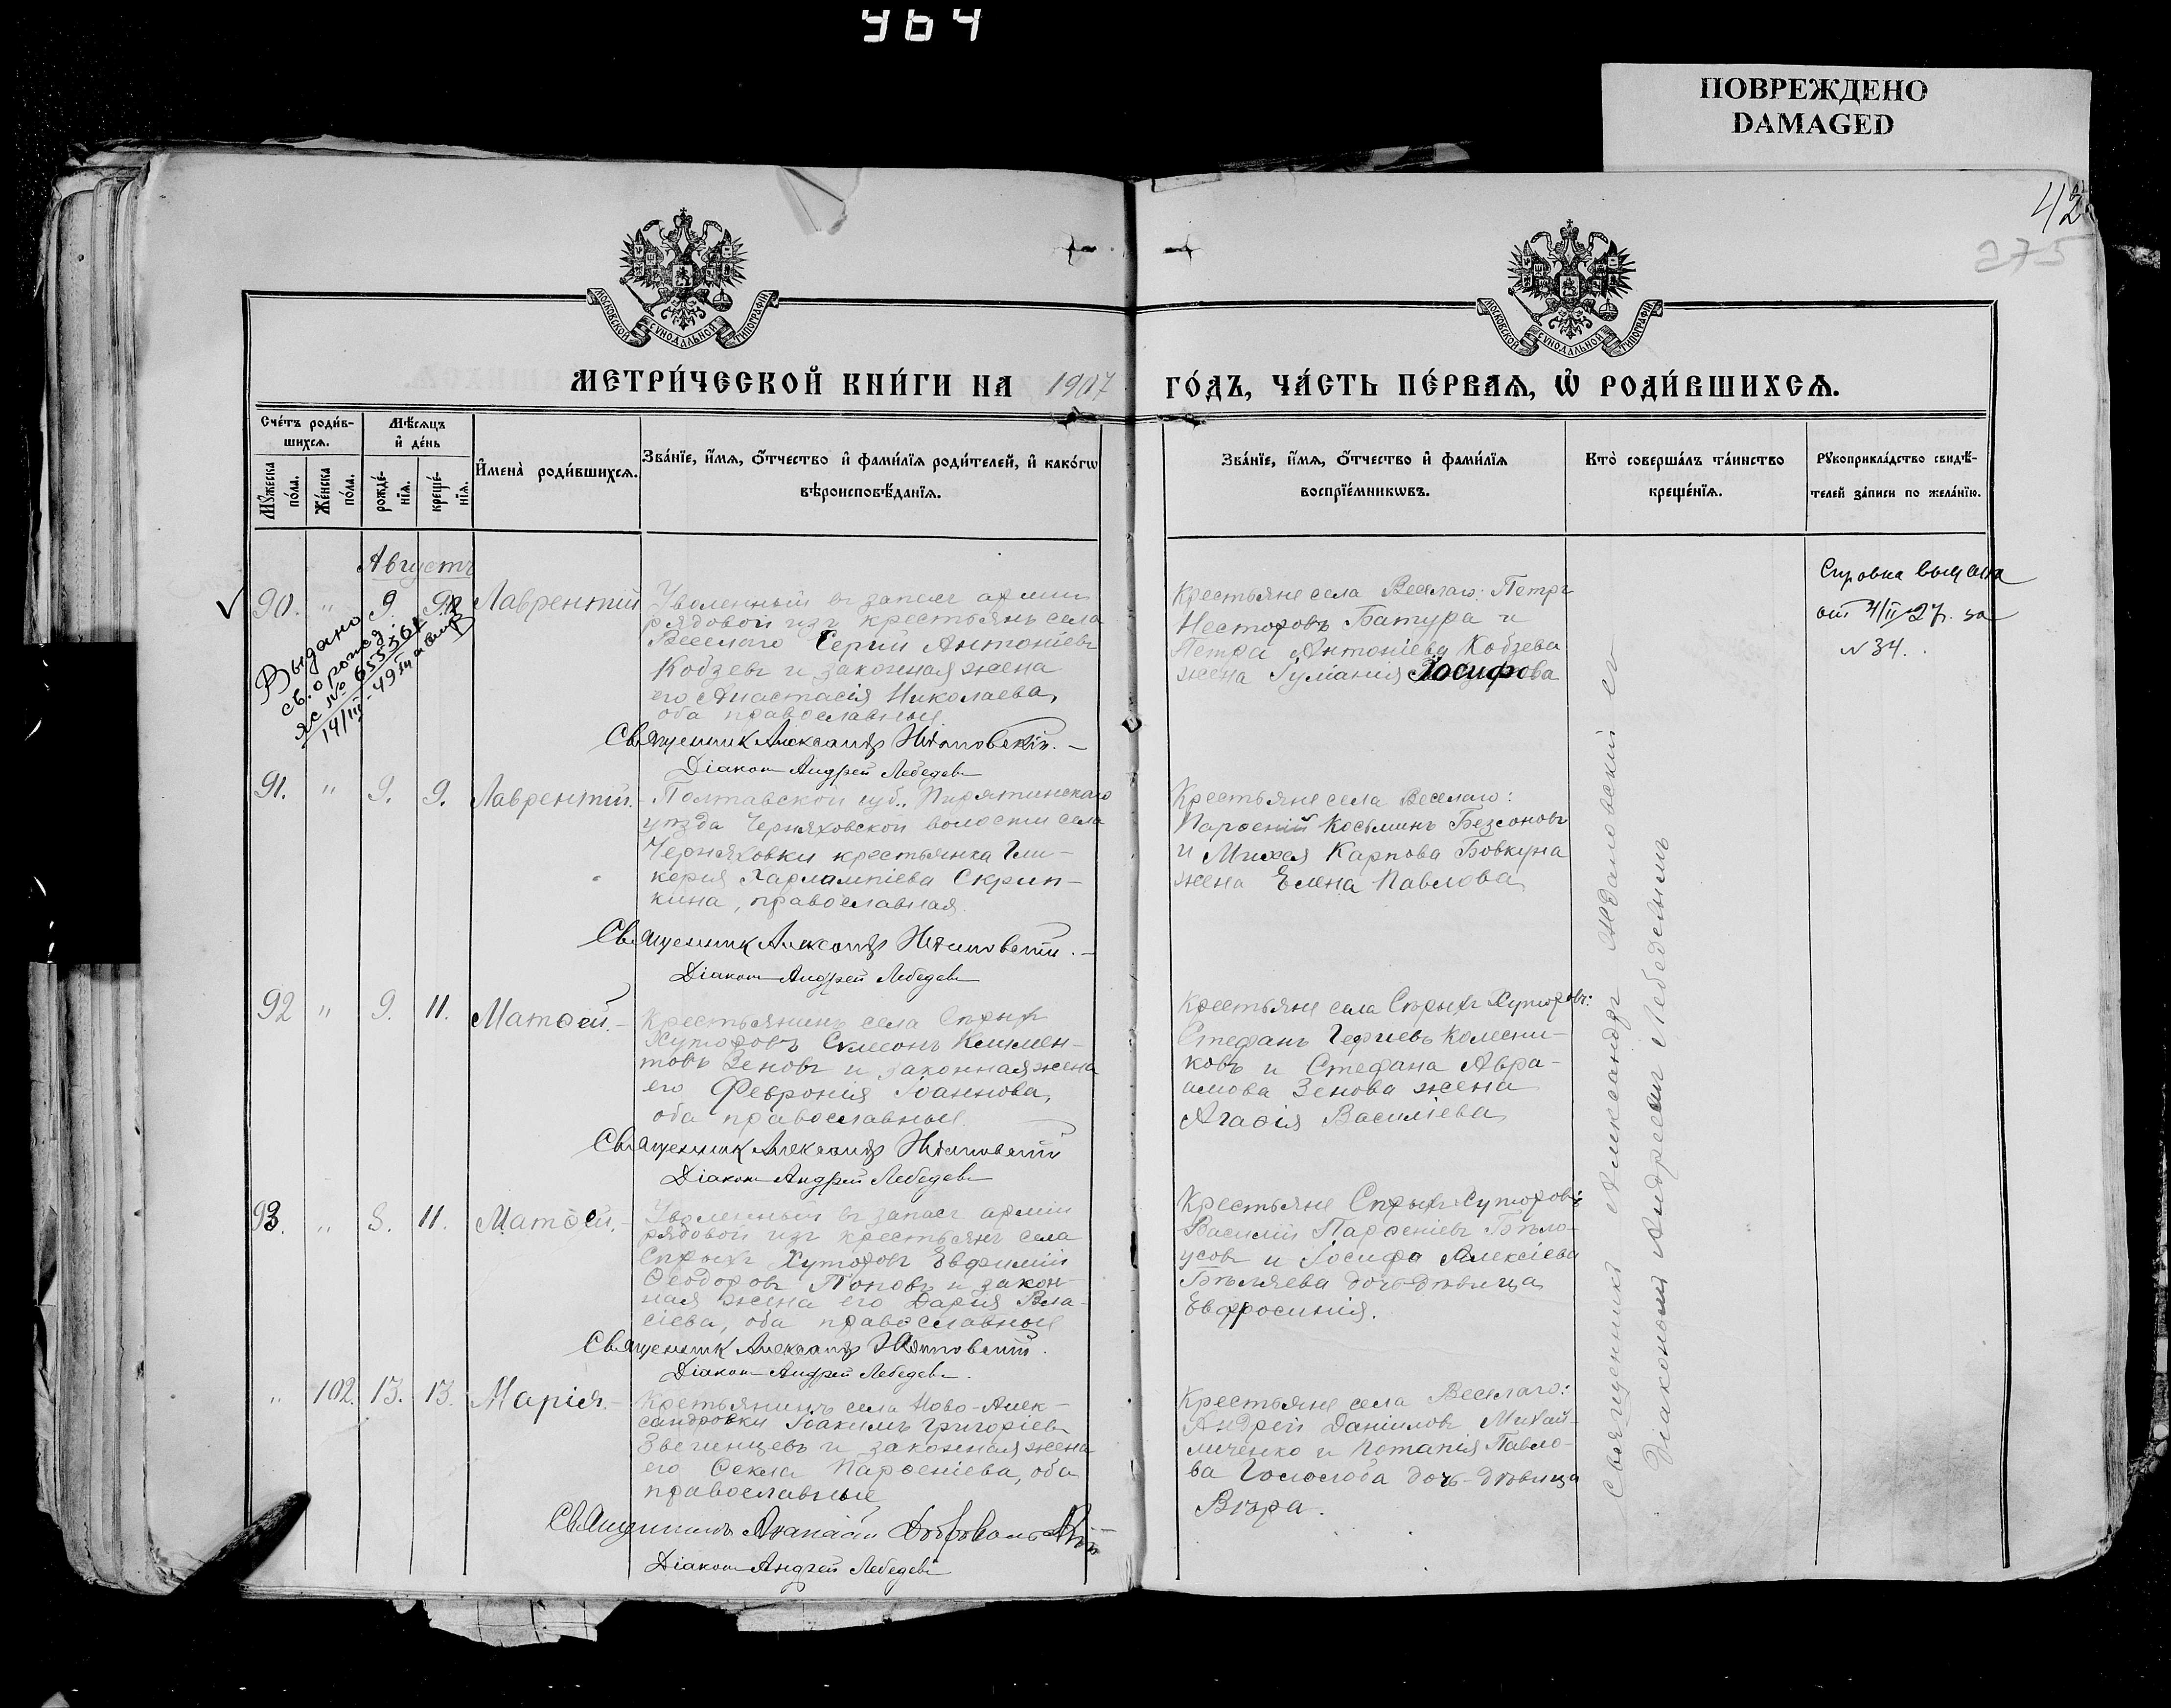 464
ПОВРЕЖДЕНО
DAMAGED
42
275
МОСКОВСКОЙ СѴНОДАЛЬНОЙ ТИПОГРАФІИ
МОСКОВСКОЙ СѴНОДАЛЬНОЙ ТИПОГРАФІИ
МЕТРИ́ЧЕСКОЙ КНИ́ГИ НА 1907
ГО́ДЪ, ЧА́СТЬ ПЕ́РВАѦ, Ѡ҆ РОДИ́ВШИХСѦ.
Сче́тъ роди́в-
шихсѧ.
Мꙋ́жеска по́ла.
Же́нска по́ла.
Мѣ́сѧцъ
и҆ де́нь
рожде́-
нїѧ.
креще́-
нїѧ.
И҆мена̀ роди́вшихсѧ.
Зва́нїе, и҆́мѧ, ѻ҆́тчество и҆ фами́лїѧ роди́телей, и҆ како́гѡ
вѣроисповѣ́данїѧ.
Зва́нїе, и҆́мѧ, ѻ҆́тчество и҆ фами́лїѧ
воспрїе́мникѡвъ.
Кто̀ соверша́лъ та́инство
креще́нїѧ.
Рꙋкоприкла́дство свидѣ́-
телей за́писи по жела́нїю.
Августъ
90. " 9. 9. Лаврентій
Уволенный въ запасъ арміи
рядовой изъ крестьянъ села
Веселаго Сергій Антоніевъ
Кобзевъ и законная жена
его Анастасія Николаева,
оба православные
Священникъ Александръ
Діаконъ Андрей Лебедевъ
Крестьяне села Веселаго: Петръ
Несторовъ Батура и
Петра Антоніева Кобзева
жена Іуліанія Іосифова
Справка
от 4/II 27 г. за
№ 34.
Выдано
св. о рожд.
14/III-49
91. " 9. 9. Лаврентій.
Полтавской губ., Пирятинскаго
уѣзда Черняховской волости села
Черняховки крестьянка Гли-
керія Харлампіева Скрип-
кина, православная.
Священникъ Александръ
Діаконъ Андрей Лебедевъ
Крестьяне села Веселаго:
Парѳеній Косьминъ Безсоновъ
и Михея Карпова Бовкуна
жена Елена Павлова
92 " 9. 11. Матѳей.
Крестьянинъ села Сѣрыхъ
Хуторовъ Симеонъ Климен-
товъ Зеновъ и законная жена
его Февронія Іоаннова,
оба православные.
Священникъ Александръ
Діаконъ Андрей Лебедевъ
Крестьяне села Сѣрыхъ Хуторовъ:
Стефанъ Колесни-
ковъ и Стефана Авра-
амова Зенова жена
Агаѳія Василіева
93. " 8. 11. Матѳей.
Уволенный въ запасъ арміи
рядовой изъ крестьянъ села
Сѣрыхъ Хуторовъ Евфимій
Ѳеодоровъ Поповъ и закон-
ная жена его Дарія Вла-
сіева, оба православные
Священникъ Александръ
Діаконъ Андрей Лебедевъ.
Крестьяне Сѣрыхъ Хуторовъ:
Василій Парѳеніевъ Бѣло-
усовъ и Іосифа Алексіева
Бѣляева дочь-дѣвица
Евфросинія.
" 102. 13. 13. Марія.
Крестьянинъ села Ново-Алек-
сандровки Іоакимъ Григоріевъ
Звегинцевъ и законная жена
его Ѳекла Парѳеніева, оба
православные
Священникъ
Діаконъ Андрей Лебедевъ
Крестьяне села Веселаго:
Андрей Даніиловъ Михай-
личенко и Потапія Павло-
ва Голослоба дочь-дѣвица
Вѣра.
Священникъ Александръ Ждановскій съ
Діакономъ Андреемъ Лебедевымъ